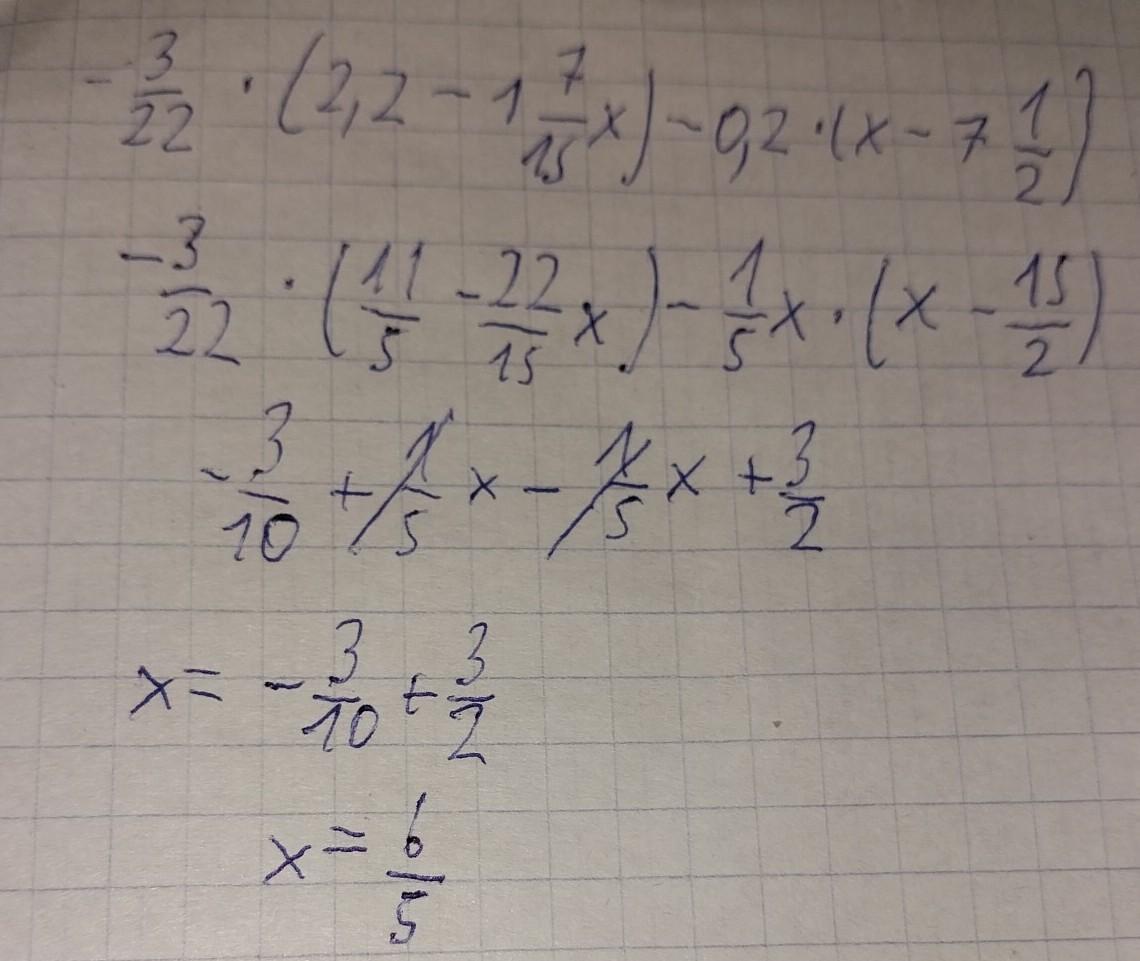 -3/22 · (2,2 - 1 7/15 x) - 0,2 · (x - 7 1/2)
-3/22 · (11/5 - 22/15 x) - 1/5 x · (x - 15/2)
-3/10 + 1/5 x - 1/5 x + 3/2
x = -3/10 + 3/2
x = 6/5